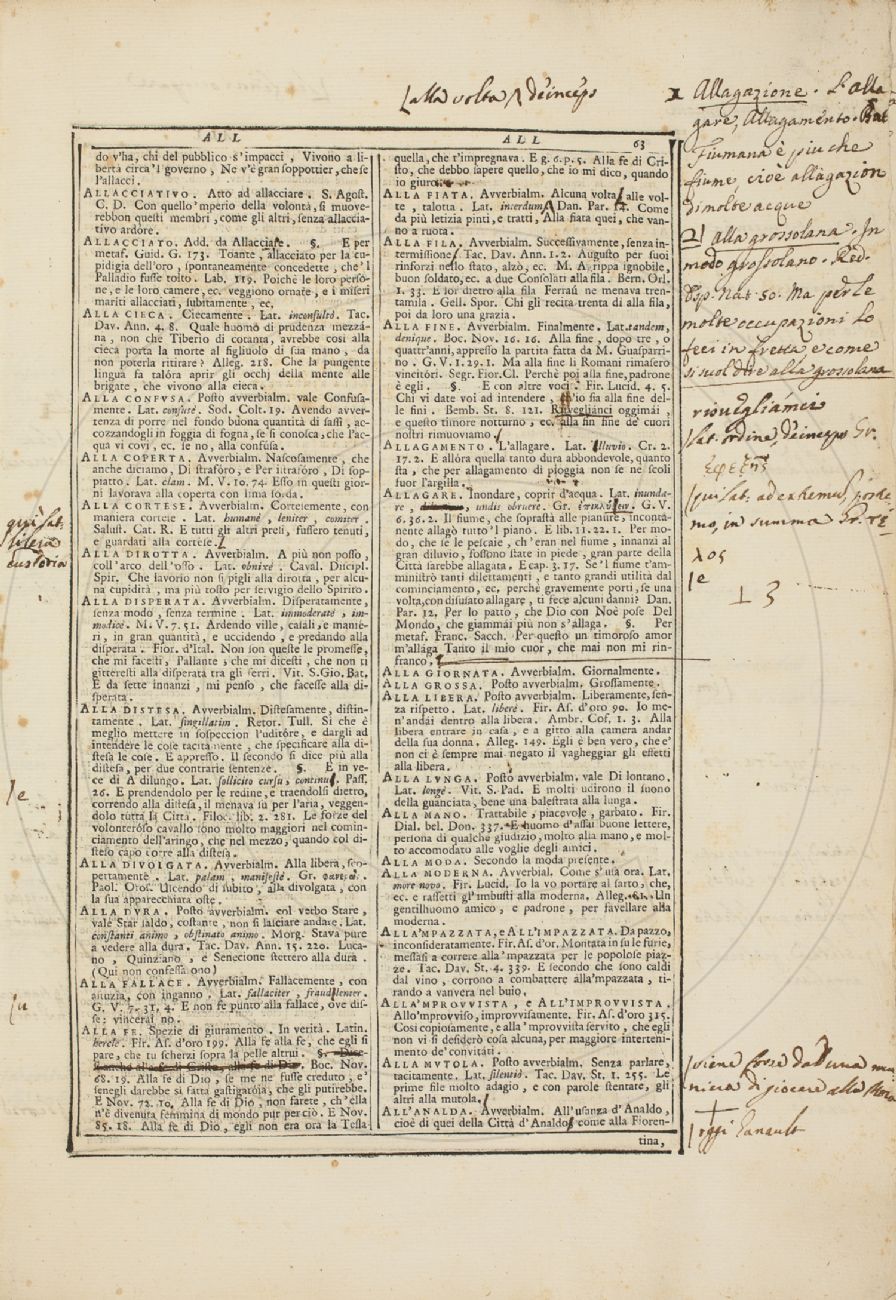 alla volta deinceps
ALL
do v'ha, chi del pubblico s'impacci, Vivono a li-
bertà circa'l governo, Ne v'è gran soppottier, che se
l'allacci.
ALLACCIATIVO. Atto ad allacciare. S. Agost.
C. D. Con quello 'mperio della volontà, si muove-
rebbon questi membri, come gli altri, senza allaccia-
tivo ardore.
ALLACCIATO. Add. da Allacciare. §. E per
metaf. Guid. G. 173. Toante, allacciato per la cu-
pidigia dell'oro, spontaneamente concedette, che'l
Palladio fusse tolto. Lab. 119. Poichè le loro perso-
ne, e le loro camere, ec. veggiono ornate, e i miseri
mariti allacciati, subitamente, ec.
ALLA CIECA. Ciecamente. Lat. inconsultè. Tac.
Dav. Ann. 4. 8. Quale huomo di prudenza mezzá-
na, non che Tiberio di cotanta, avrebbe così alla
cieca porta la morte al figliuolo di sua mano, da
non poterla ritirare? Alleg. 218. Che la pungente
lingua fa talóra aprir gli occhj della mente alle
brigate, che vivono alla cieca.
ALLA CONFUSA. Posto avverbialm. vale Confusa-
mente. Lat. confusè. Sod. Colt. 19. Avendo avver-
tenza di porre nel fondo buona quantità di sassi, ac-
cozzandogli in foggia di fogna, se si conosca, che l'ac-
qua vi covi, ec. se no, alla confusa.
ALLA COPERTA. Avverbialm. Nascosamente, che
anche diciamo, Di straforo, e Per istraforo, Di sop-
piatto. Lat. clam. M. V. 10. 74. Esso in questi gior-
ni lavorava alla coperta con lima sorda.
ALLA CORTESE. Avverbialm. Cortesemente, con
maniera cortese. Lat. humanè, leniter, comiter.
Salust. Cat. R. E tutti gli altri presi, fussero tenuti,
e guardati alla cortese.
ALLA DIROTTA. Avverbialm. A più non posso,
coll'arco dell'osso. Lat. obnixè. Caval. Discipl.
Spir. Che lavorio non si pigli alla dirotta, per alcu-
na cupidità, ma più tosto per servigio dello Spirito.
ALLA DISPERATA. Avverbialm. Disperatamente,
senza modo, senza termine. Lat. immoderatè, im-
modicè. M. V. 7. 51. Ardendo ville, casali, e manie-
ri, in gran quantità, e uccidendo, e predando alla
disperata. Fior. d'Ital. Non son queste le promesse,
che mi facesti, Pallante, che mi dicesti, che non ti
gitteresti alla disperata tra gli ferri. Vit. S. Gio. Bat.
E da sette innanzi, mi penso, che facesse alla di-
sperata.
ALLA DISTESA. Avverbialm. Distesamente, distin-
tamente. Lat. singillatim. Retor. Tull. Si che è
meglio mettere in sospeccion l'uditóre, e dargli ad
intendere le cose tacitamente, che specificare alla di-
stesa le cose. E appresso. Il secondo si dice più alla
distesa, per due contrarie sentenze. §. E in ve-
ce di A dilungo. Lat. sollicito cursu, continuò. Pass.
26. E prendendolo per le redine, e traendolsi dietro,
correndo alla distesa, il menava sù per l'aria, veggen-
dolo tutta la Città. Filoc. lib. 2. 281. Le forze del
volonteróso cavallo sono molto maggiori nel comin-
ciamento dell'aringo, che nel mezzo, quando col di-
steso capo corre alla distesa.
ALLA DIVOLGATA. Avverbialm. Alla libera, sco-
pertamente. Lat. palam, manifestè. Gr.
Paol. Oros. Uscendo di subito, alla divolgata, con
la sua apparecchiata oste.
ALLA DURA. Posto avverbialm. col verbo Stare,
vale Star saldo, costante, non si lasciare andare. Lat.
constanti animo, obstinato animo. Morg. Stava pure
a vedere alla dura. Tac. Dav. Ann. 15. 220. Luca-
no, Quinziano, e Senecione stettero alla dura.
(Qui non confessa ono)
ALLA FALLACE. Avverbialm. Fallacemente, con
astuzia, con inganno. Lat. fallaciter, fraudulenter.
G. V. 7. 31. 4. E non fe punto alla fallace, ove dis-
se: vincerai no.
ALLA FE. Spezie di giuramento. In verità. Latin.
hercle. Fir. As. d'oro 199. Alla fe alla fe, che egli si
pare, che tu scherzi sopra la pelle altrui. §. Dice-
Boc. Nov.
68. 19. Alla fe di Dio, se me ne fusse creduto, e'
senegli darebbe sì fatta gastigatóia, che gli putirebbe.
E Nov. 72. 10. Alla fe di Dio, non farete, ch'ella
n'è divenuta femmina di mondo pur perciò. E Nov.
85. 18. Alla fe di Dio, egli non era ora la Tessa
ALL 63
quella, che t'impregnava. E g. 6. p. 5. Alla fe di Cri-
sto, che debbo sapere quello, che io mi dico, quando
io giuro.
ALLA FIATA. Avverbialm. Alcuna volta, alle vol-
te, talotta. Lat. interdum. Dan. Par. 14. Come
da più letizia pinti, e tratti, Alla fiata quei, che van-
no a ruota.
ALLA FILA. Avverbialm. Successivamente, senza in-
termissione. Tac. Dav. Ann. 1. 2. Augusto per suoi
rinforzi nello stato, alzò, ec. M. Agrippa ignobile,
buon soldato, ec. a due Consolati alla fila. Bern. Orl.
1. 33. E lor dietro alla fila Ferraù ne menava tren-
tamila. Gell. Spor. Chi gli recita trenta di alla fila,
poi da loro una grazia.
ALLA FINE. Avverbialm. Finalmente. Lat. tandem,
denique. Boc. Nov. 16. 16. Alla fine, dopo tre, o
quattr'anni, appresso la partita fatta da M. Guasparri-
no. G. V. 1. 29. 1. Ma alla fine li Romani rimasero
vincitóri. Segr. Fior. Cl. Perchè poi alla fine, padrone
è egli. §. E con altre voci. Fir. Lucid. 4. 5.
Chi vi date voi ad intendere, ch'io sia alla fine del-
le fini. Bemb. St. 8. 121. Risvegliánci oggimái,
e questo timore notturno, ec. alla fin fine de' cuori
nostri rimuoviamo.
ALLAGAMENTO. L'allagare. Lat. alluvio. Cr. 2.
17. 2. E allóra quella tanto dura abbondevole, quanto
sta, che per allagamento di pioggia non se ne scoli
fuor l'argilla.
ALLAGARE. Inondare, coprir d'acqua. Lat. inunda-
re, undis obruere. Gr. G. V.
6. 36. 2. Il fiume, che soprastà alle pianure, inconta-
nente allagò tutto'l piano. E lib. 11. 22. 1. Per mo-
do, che se le pescaie, ch'eran nel fiume, innanzi al
gran diluvio, fossono state in piede, gran parte della
Città sarebbe allagata. E cap. 3. 17. Se'l fiume t'am-
ministrò tanti dilettamenti, e tanto grandi utilità dal
cominciamento, ec. perchè gravemente porti, se una
volta, con disusato allagare, ti fece alcuni danni? Dan.
Par. 12. Per lo patto, che Dio con Noè pose Del
Mondo, che giammái più non s'allaga. §. Per
metaf. Franc. Sacch. Per questo un timoroso amor
m'allága Tanto il mio cuor, che mai non mi rin-
franco.
ALLA GIORNATA. Avverbialm. Giornalmente.
ALLA GROSSA. Posto avverbialm. Grossamente.
ALLA LIBERA. Posto avverbialm. Liberamente, sen-
za rispetto. Lat. liberè. Fir. As. d'oro 90. Io me-
n'andái dentro alla libera. Ambr. Cof. 1. 3. Alla
libera entrare in casa, e a gitto alla camera andar
della sua donna. Alleg. 149. Egli è ben vero, che e'
non ci è sempre mai negato il vagheggiar gli effetti
alla libera.
ALLA LUNGA. Posto avverbialm. vale Di lontano.
Lat. longè. Vit. S. Pad. E molti udirono il suono
della guanciata, bene una balestrata alla lunga.
ALLA MANO. Trattabile, piacevole, garbato. Fir.
Dial. bel. Don. 337. E huomo d'assai buone lettere,
persona di qualche giudizio, molto alla mano, e mol-
to accomodato alle voglie degli amici.
ALLA MODA. Secondo la moda presente.
ALLA MODERNA. Avverbial. Come s'usa ora. Lat.
more novo. Fir. Lucid. Io la vo portare al sarto, che,
ec. e rassetti gl'imbusti alla moderna. Alleg. 61. Un
gentilhuomo amico, e padrone, per favellare alla
moderna.
ALLA 'MPAZZATA, e ALL'IMPAZZATA. Da pazzo,
inconsideratamente. Fir. As. d'or. Montata in su le furie,
messasi a correre alla 'mpazzata per le popolose piaz-
ze. Tac. Dav. St. 4. 339. E secondo che sono caldi
dal vino, corrono a combattere alla 'mpazzata, ti-
rando a vanvera nel buio.
ALLA 'MPROVVISTA, e ALL'IMPROVVISTA.
Allo 'mprovviso, improvvisamente. Fir. As. d'oro 315.
Così copiosamente, e alla 'mprovvista servito, che egli
non vi si desiderò cosa alcuna, per maggiore interteni-
mento de' convitáti.
ALLA MUTOLA. Posto avverbialm. Senza parlare,
tacitamente. Lat. silentiò. Tac. Dav. St. 1. 255. Le
prime file molto adagio, e con parole stentate, gli
altri alla mutola.
ALL'ANALDA. Avverbialm. All'usanza d'Analdo,
cioè di quei della Città d'Analdo, come alla Fioren-
tina,
Allagazione. L'alla-
gare, Allagamento. But
Fiumana è piu che
fiume, cioè allagazion
di molte acque
2] alla grossolana. In
modo grossolano. Red.
Esp. Nat. 50. Ma per le
molte occupazioni lo
feci in fretta e come
si suol dire alla grossolana
risvegliámci
Lat. ordine, deinceps Gr.
ἐφεξῆς
qui Lat. ad extremum, postre
mo, in summa Gr. τέ
λος
e
⊥ 3
e
u
viene forse da una ma
niera di giocare alla
oggi Hanault